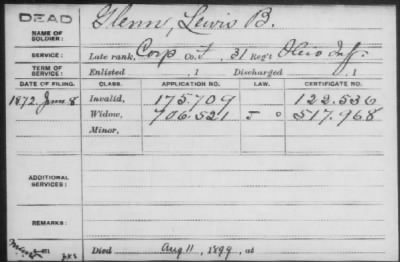 DEAD
Glenn, Lewis B.
NAME OF SOLDIER:
SERVICE: Late rank, Corp Co. I, 31 Reg't Ohio Inf.
TERM OF SERVICE: Enlisted , 1 Discharged , 1
DATE OF FILING. CLASS. APPLICATION NO. LAW. CERTIFICATE NO.
1872. Jan. 8 Invalid, 175.709 122.536
Widow, 706.521 517.968
Minor,
ADDITIONAL SERVICES:
REMARKS:
Died Aug 11, 1899, at